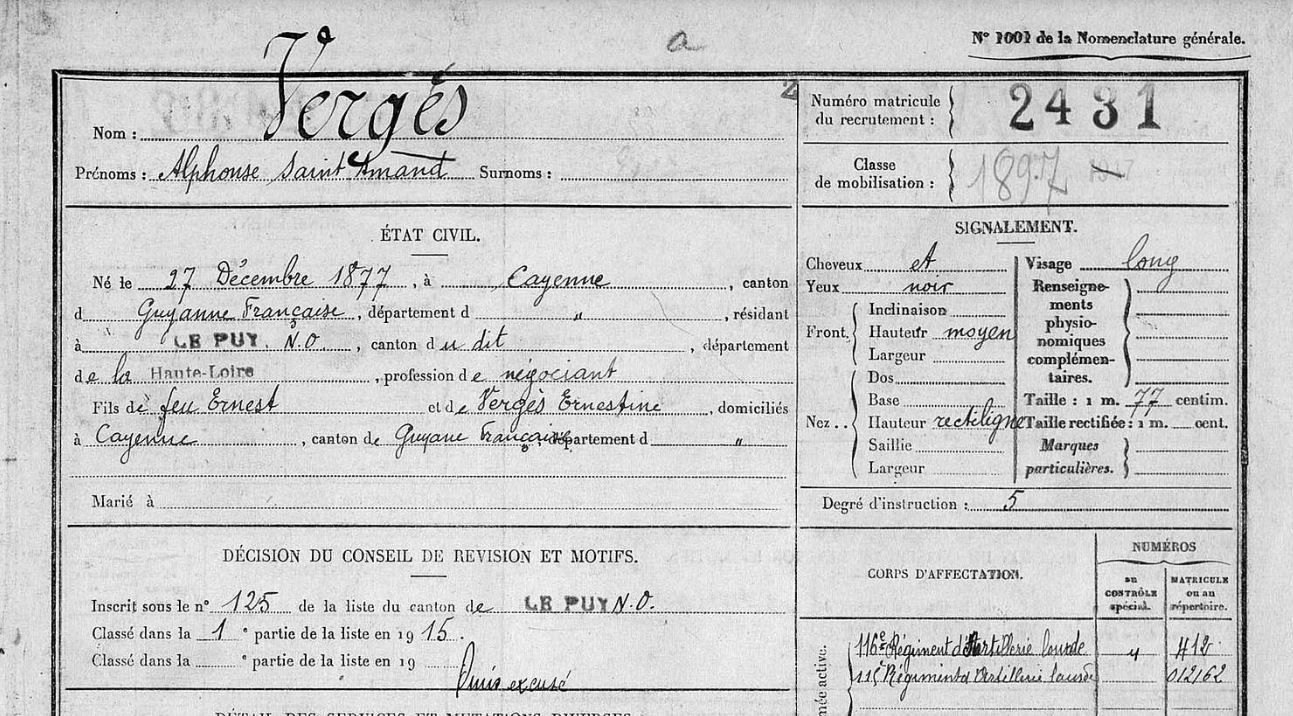 a
N° 1001 de la Nomenclature générale.
Nom : Vergès
Prénoms : Alphonse Saint Amand Surnoms :
2
Numéro matricule du recrutement : 2431
Classe de mobilisation : 1897
ÉTAT CIVIL.
Né le 27 Décembre 1877, à Cayenne, canton
d Guyanne Française, département d ", résidant
à LE PUY. N.O, canton du dit, département
de la Haute-Loire, profession de négociant
Fils de feu Ernest et de Vergès Ernestine, domiciliés
à Cayenne, canton de Guyane française, département d "
Marié à
SIGNALEMENT.
Cheveux et
Yeux noir
Front. Inclinaison
Hauteur moyen
Largeur
Nez .. Dos
Base
Hauteur rectiligne
Saillie
Largeur
Visage long
Renseigne-
ments
physio-
nomiques
complémen-
taires.
Taille : 1 m. 77 centim.
Taille rectifiée : 1 m. cent.
Marques
particulières.
Degré d'instruction : 5
DÉCISION DU CONSEIL DE REVISION ET MOTIFS.
Inscrit sous le n° 125 de la liste du canton de LE PUY N.O.
Classé dans la 1e partie de la liste en 1915.
Classé dans la e partie de la liste en 19
excusé
DÉTAIL DES SERVICES ET MUTATIONS DIVERSES
CORPS D'AFFECTATION.
NUMÉROS
au
CONTRÔLE
spécial.
MATRICULE
ou au
répertoire.
116e Régiment d'Artillerie lourde " 412
115 Régiment d'Artillerie lourde 012162
mée active.